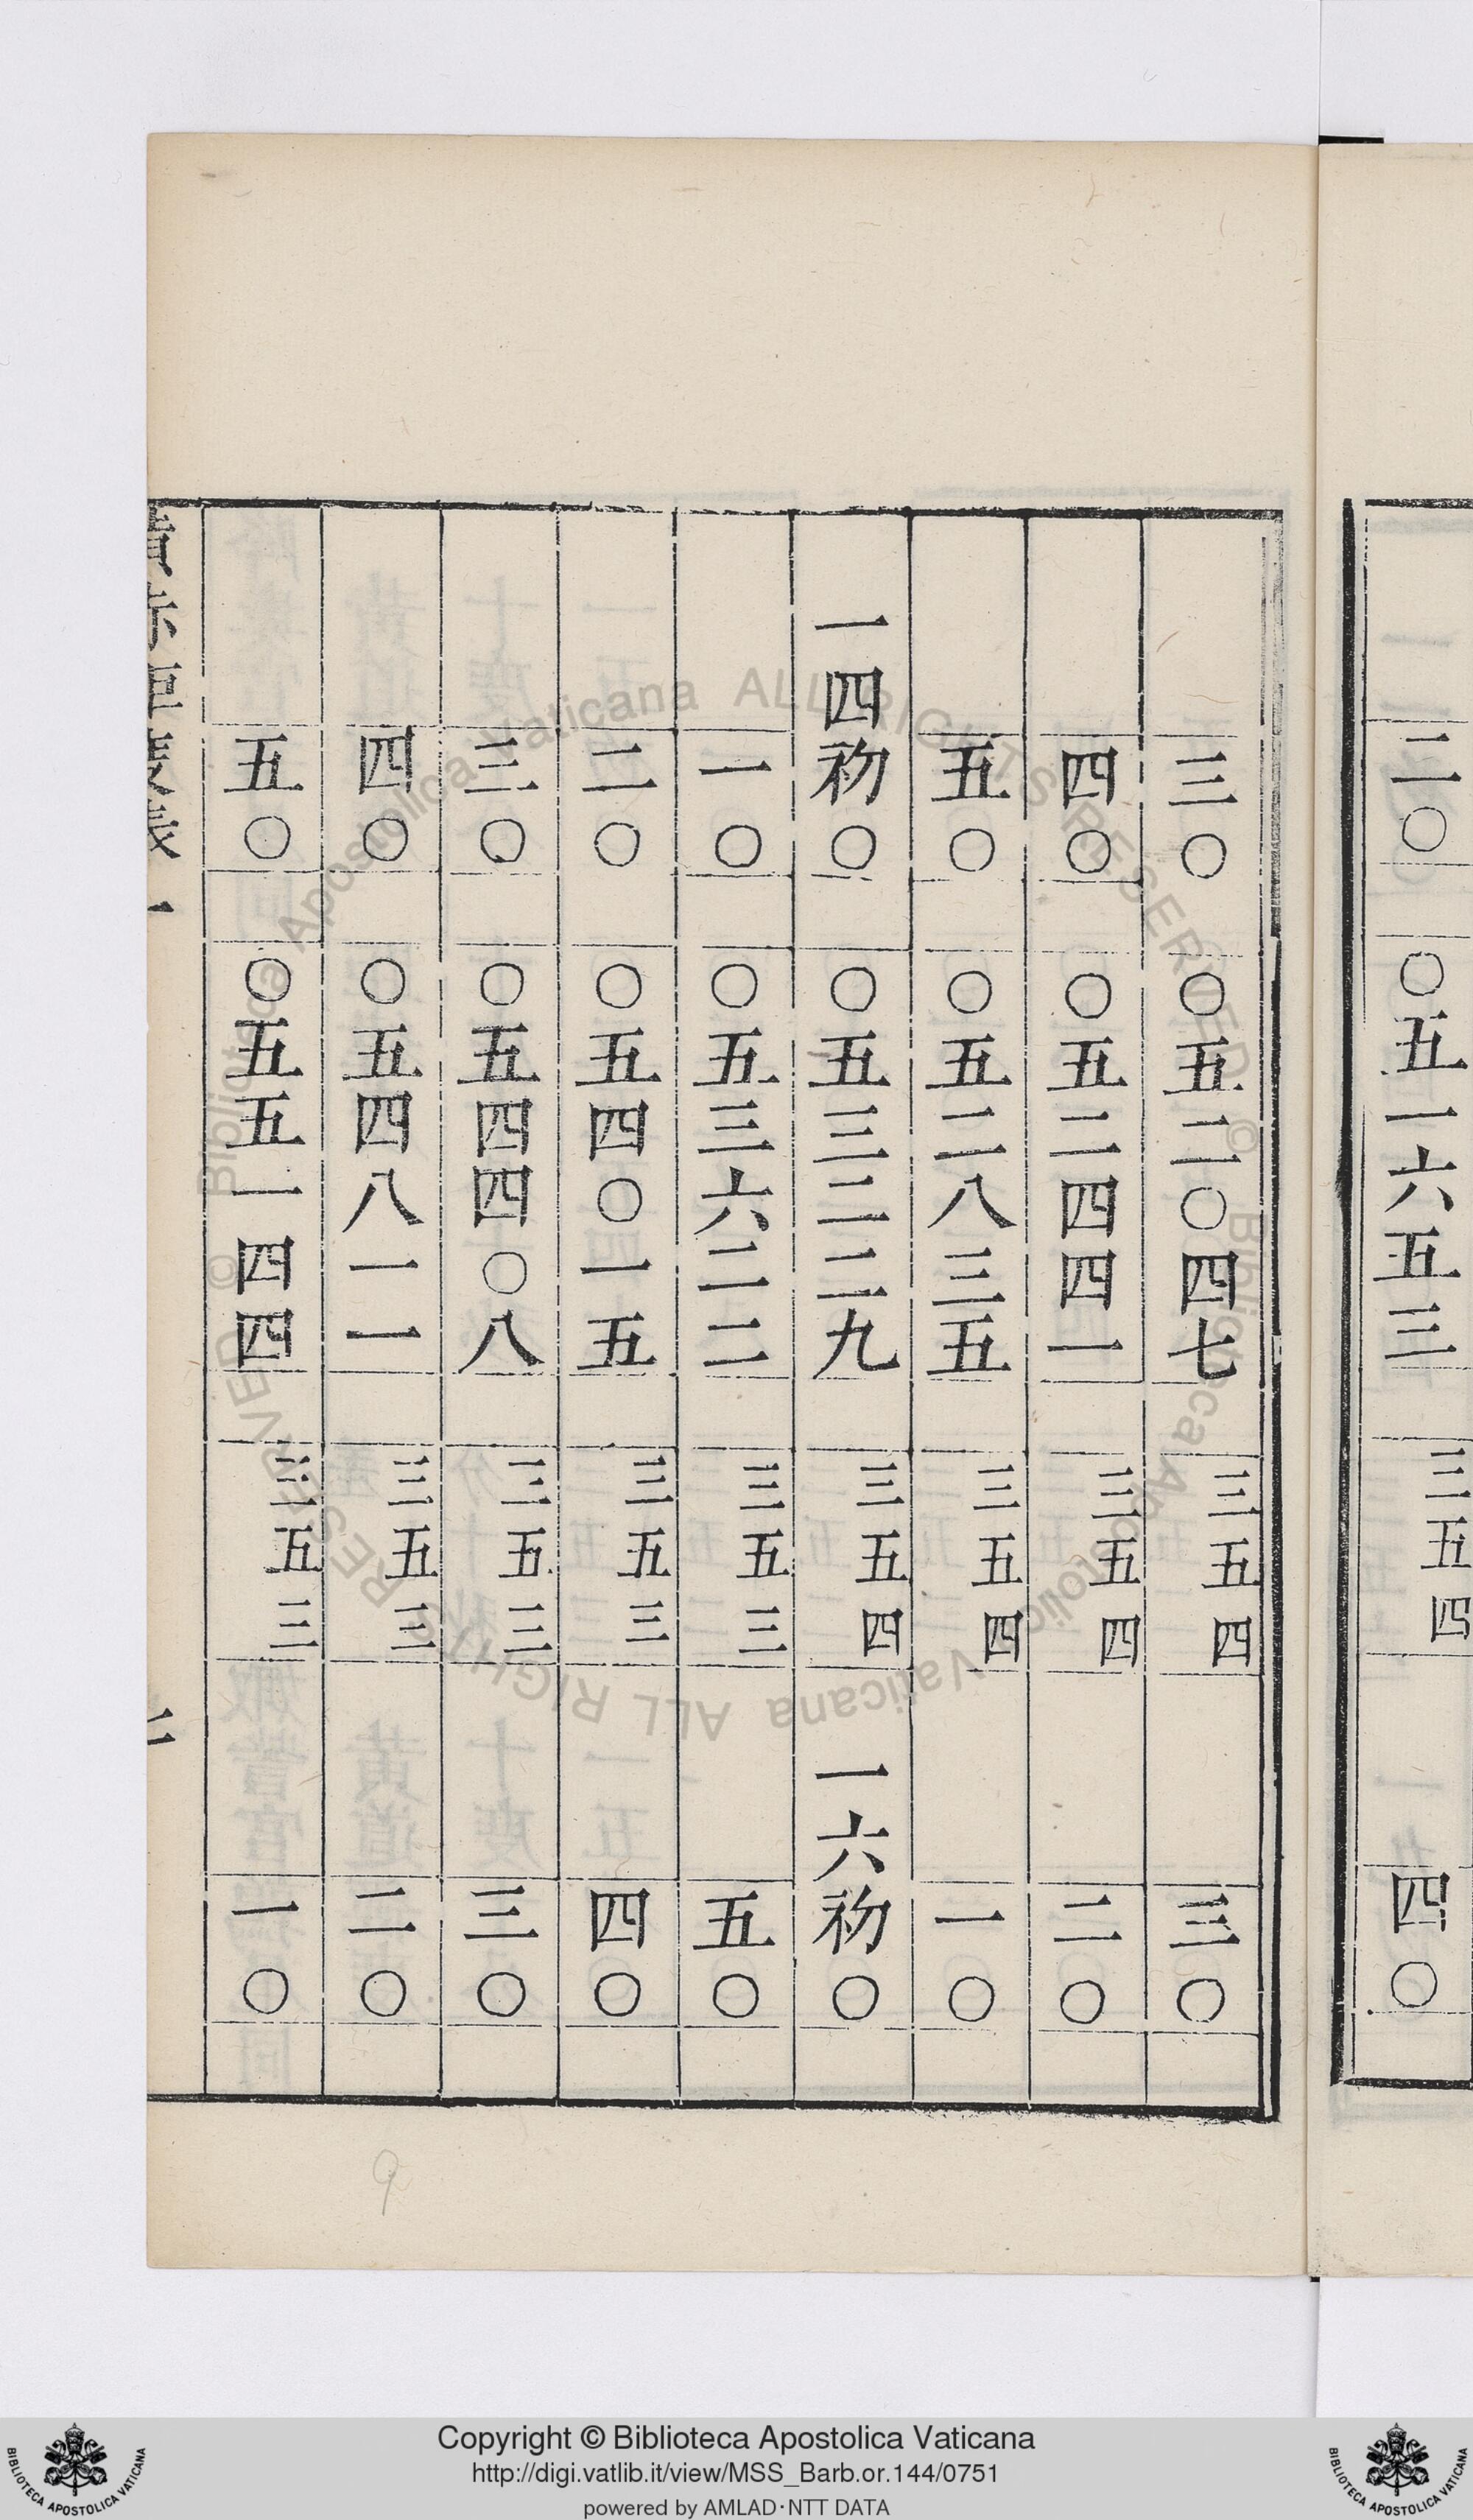 二〇 〇五一六五三 三五四 四〇
三〇 〇五二〇四七 三五四 三〇
四〇 〇五二四四一 三五四 二〇
五〇 〇五二八三五 三五四 一〇
一四初〇 〇五三二二九 三五四 一六初〇
一〇 〇五三六二二 三五三 五〇
二〇 〇五四〇一五 三五三 四〇
三〇 〇五四四〇八 三五三 三〇
四〇 〇五四八一一 三五三 二〇
五〇 〇五五一四四 三五三 一〇
Copyright © Biblioteca Apostolica Vaticana
http://digi.vatlib.it/view/MSS_Barb.or.144/0751
powered by AMLAD·NTT DATA